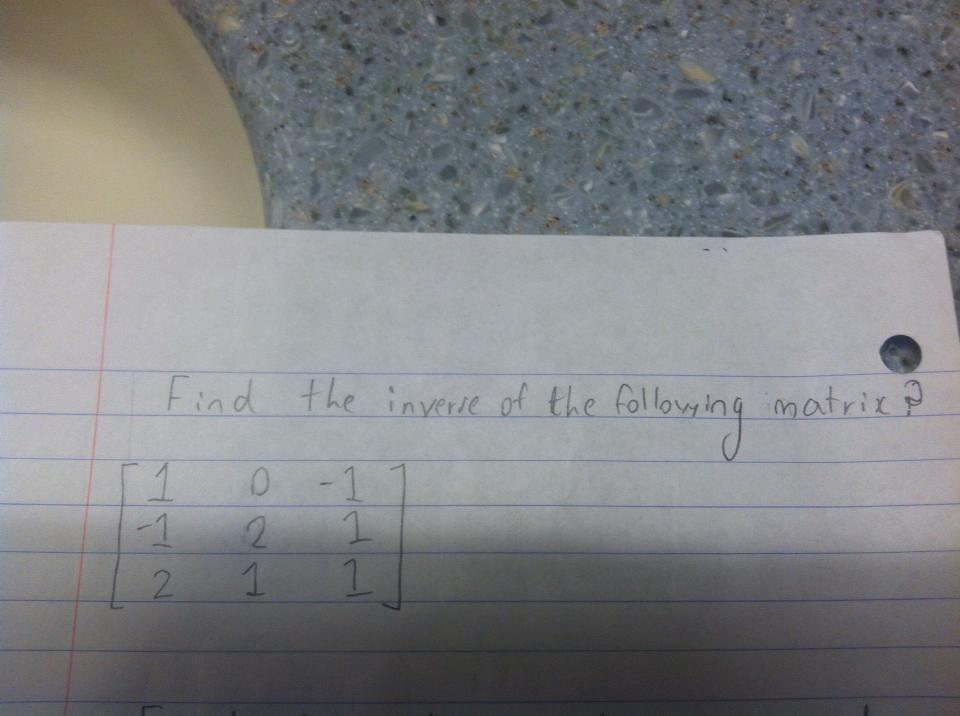 Find the inverse of the following matrix?
1 0 -1
-1 2 1
2 1 1